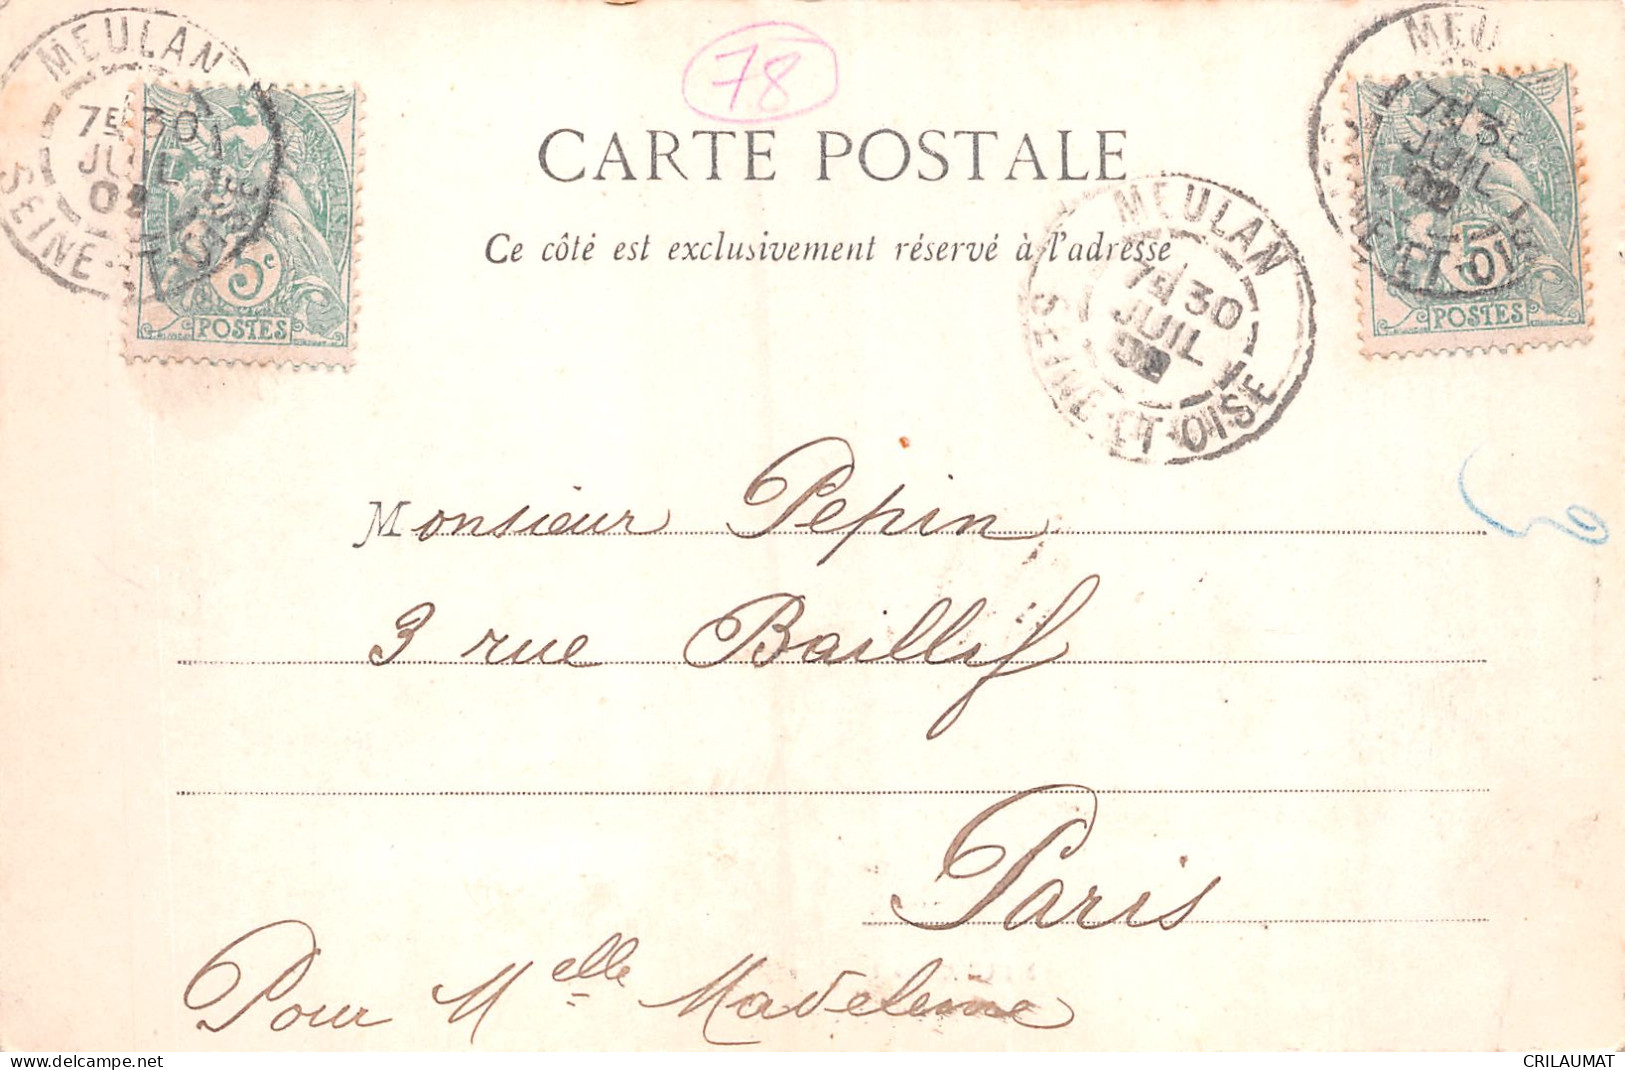 MEULAN
7E 30
JUIL
SEINE-ET-OISE
5c
POSTES
78
CARTE POSTALE
Ce côté est exclusivement réservé à l'adresse
MEULAN
7E 30
JUIL
SEINE-ET-OISE
7E 30
JUIL
5
POSTES
Monsieur Pepin
3 rue Baillif
Paris
Pour Melle Madeleine
CRILAUMAT